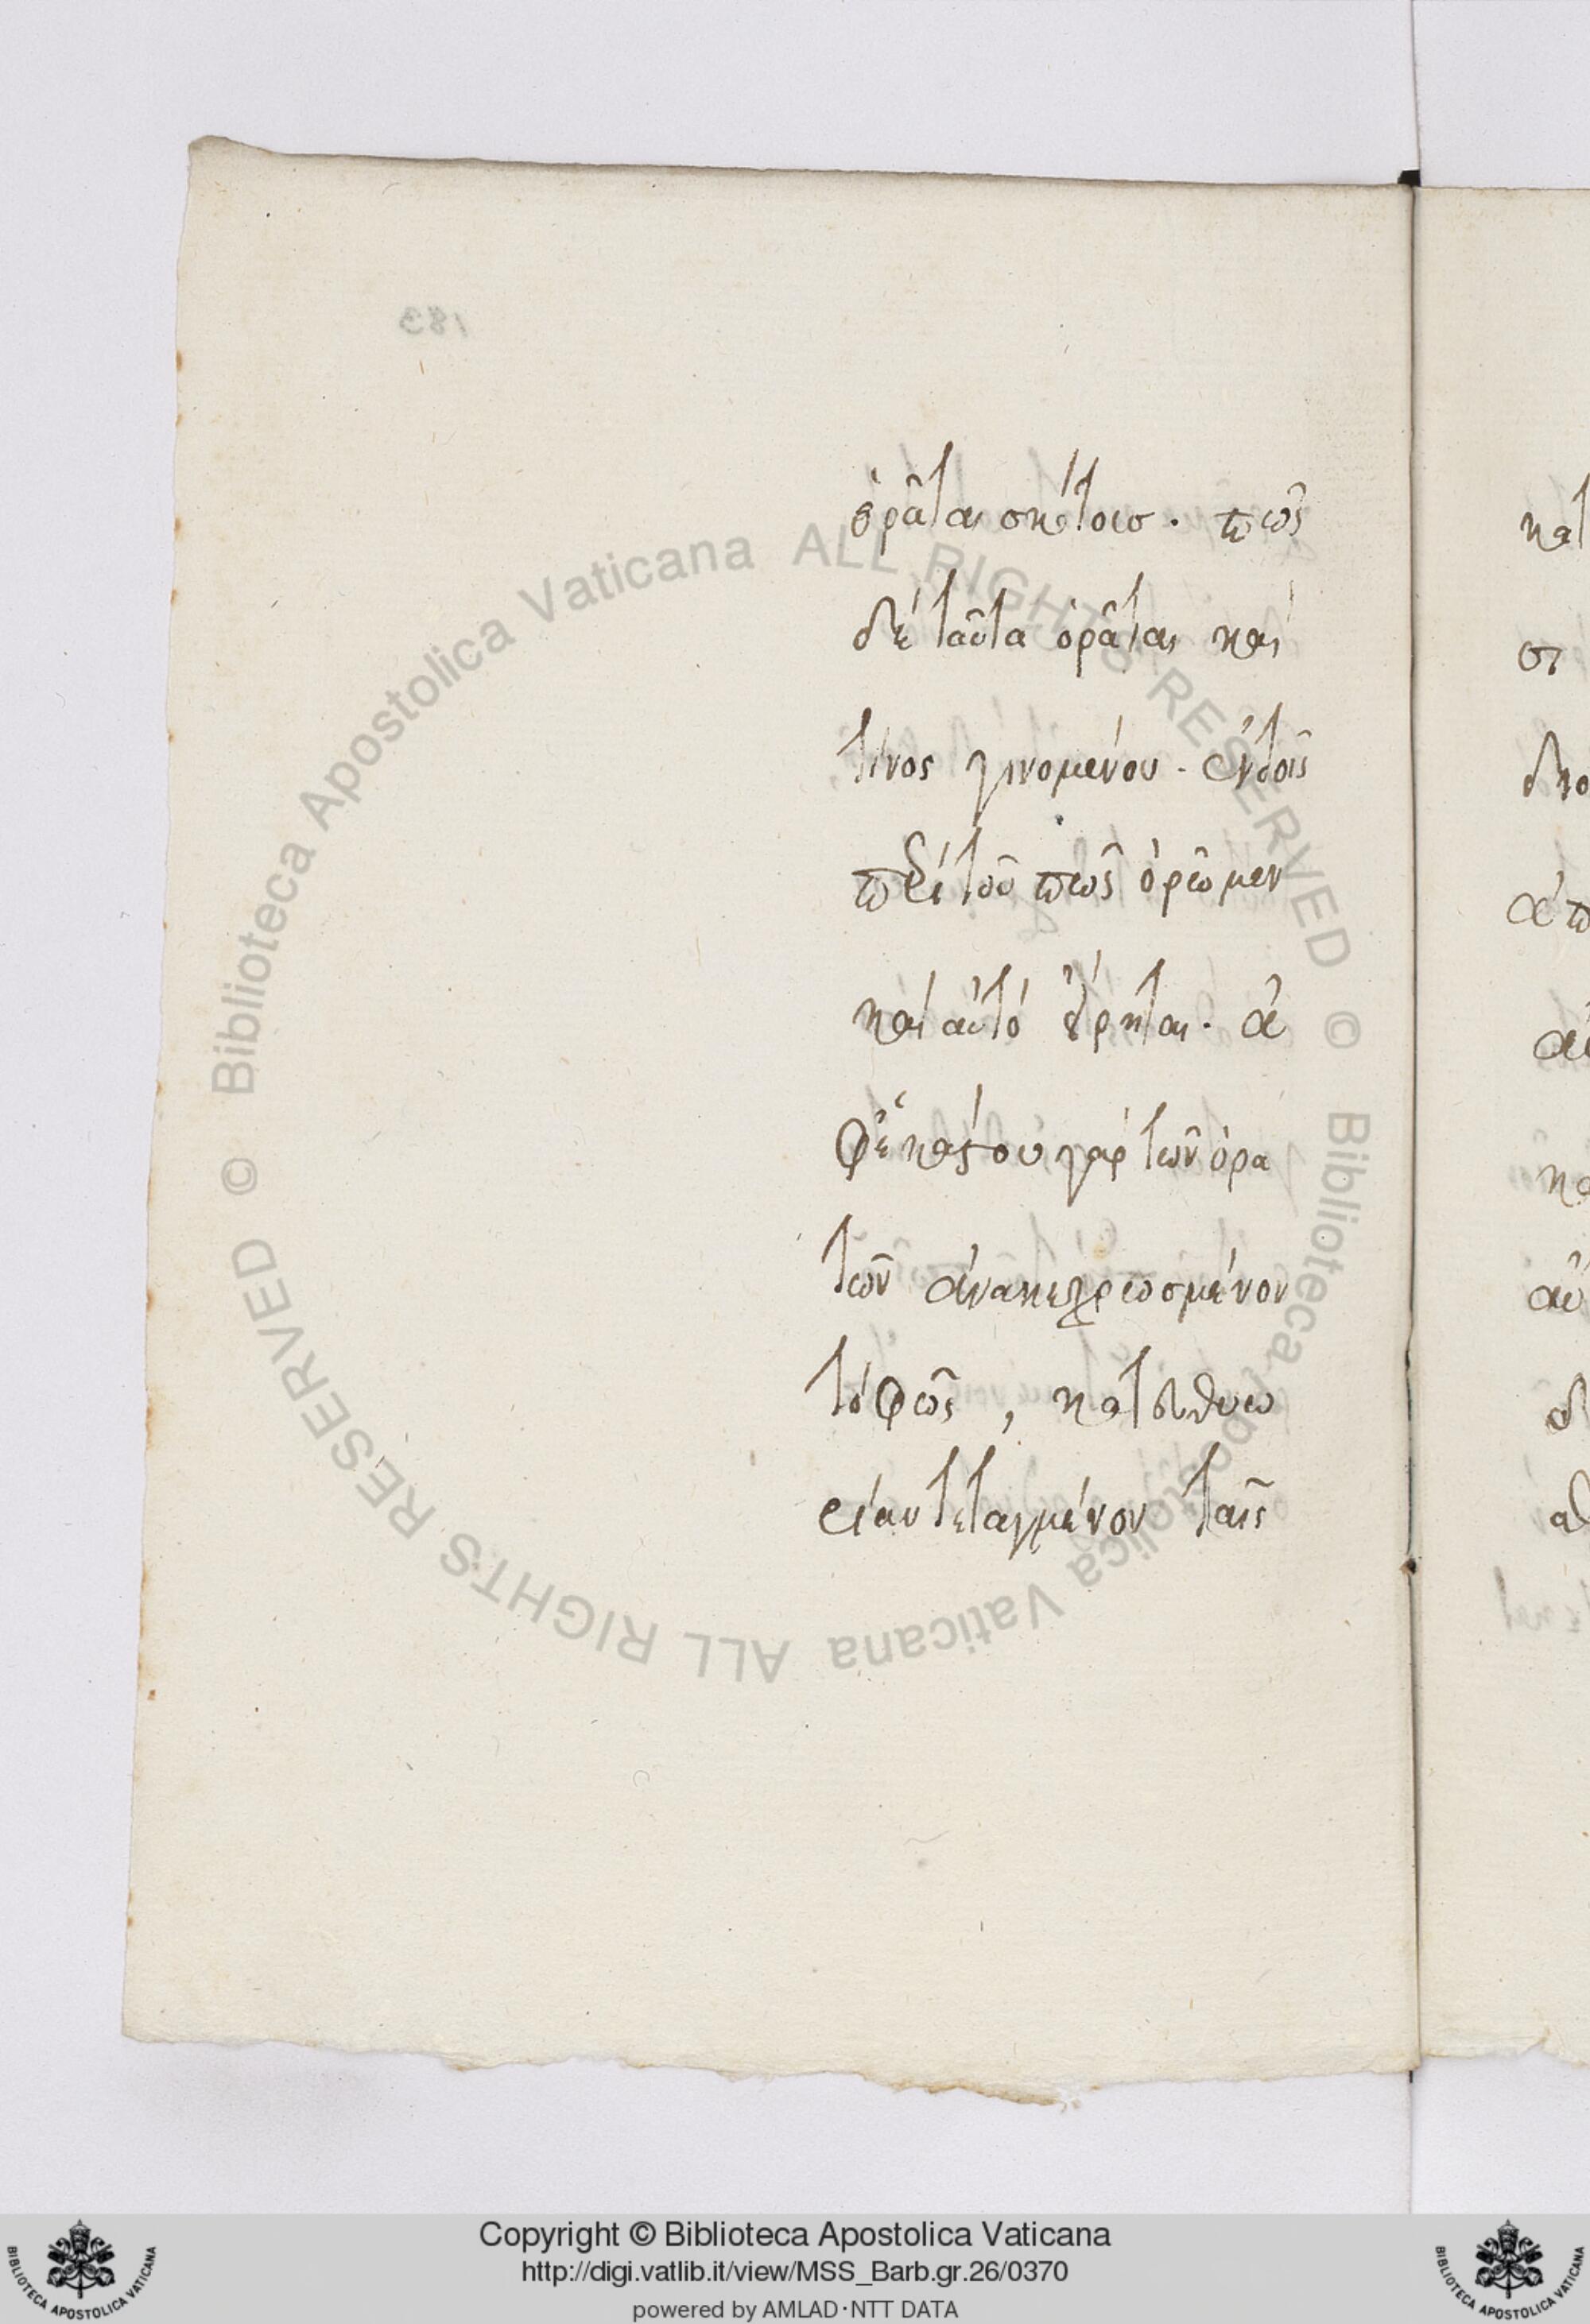 ὁρᾶται σκότοισ. πῶς
δὲ ταῦτα ὁρᾶται καὶ
τίνος γινομένου. ἐν τοῖς
περὶ τοῦ πῶς ὁρῶμεν
καὶ αὐτὸ εἴρηται. ἀ
φ' ἑκάστου γὰρ τῶν ὁρα
τῶν ἀνακεχρωσμένον
τὸ φῶς, κατευθυω
ταῖς
183
Biblioteca Apostolica Vaticana ALL RIGHTS RESERVED ©
Biblioteca Apostolica Vaticana ALL RIGHTS RESERVED ©
Copyright © Biblioteca Apostolica Vaticana
http://digi.vatlib.it/view/MSS_Barb.gr.26/0370
powered by AMLAD·NTT DATA
BIBLIOTECA APOSTOLICA VATICANA
BIBLIOTECA APOSTOLICA VATICANA